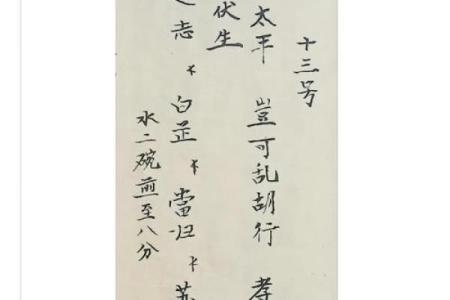 十三号
太平 豈可乱胡行
伏生
志 白芷 當归
水二碗煎至八分